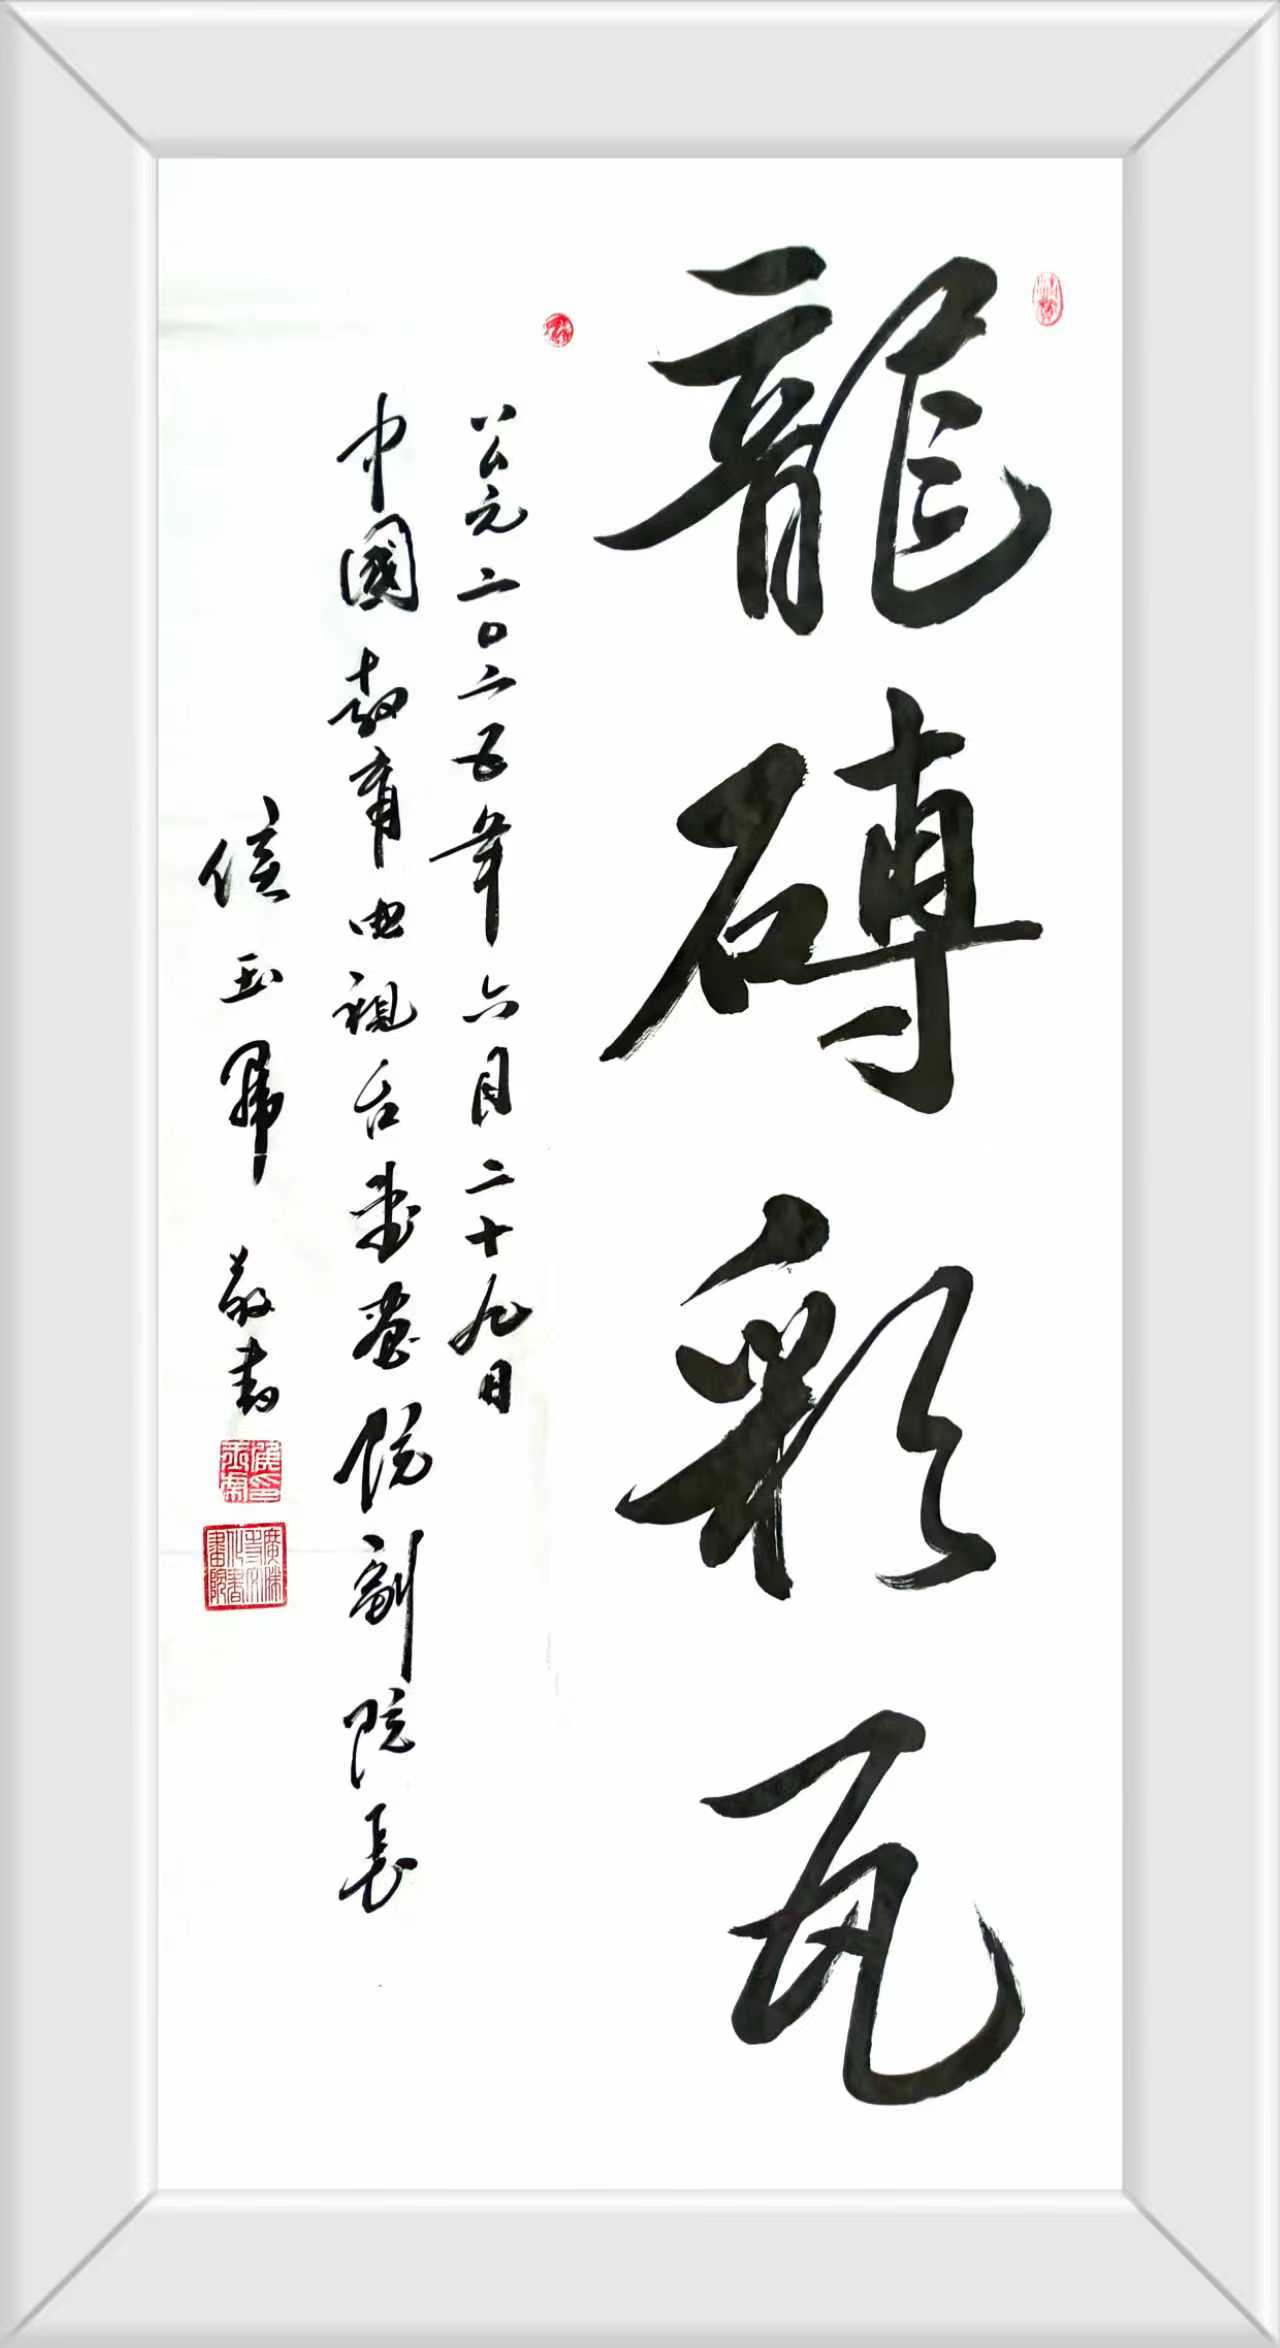 龍磚彩瓦
公元二0二五年六月二十九日
中國教育电視台書画院副院長
侯玉犀 敬書